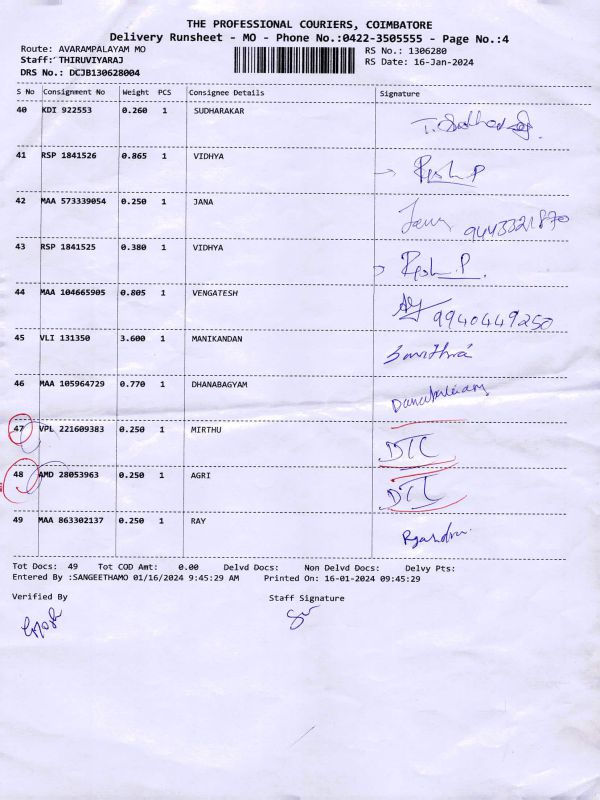 THE PROFESSIONAL COURIERS, COIMBATORE
Delivery Runsheet - MO - Phone No.:0422-3505555 - Page No.:4
Route: AVARAMPALAYAM MO RS No.: 1306280
Staff: THIRUVIYARAJ RS Date: 16-Jan-2024
DRS No.: DCJB130628004
S No Consignment No Weight PCS Consignee Details Signature
40 KDI 922553 0.260 1 SUDHARAKAR
41 RSP 1841526 0.865 1 VIDHYA
42 MAA 573339054 0.250 1 JANA Jana 9443321870
43 RSP 1841525 0.380 1 VIDHYA
44 MAA 104665905 0.805 1 VENGATESH 9940449250
45 VLI 131350 3.600 1 MANIKANDAN
46 MAA 105964729 0.770 1 DHANABAGYAM
47 VPL 221609383 0.250 1 MIRTHU DTC
48 AMD 28053963 0.250 1 AGRI
49 MAA 863302137 0.250 1 RAY
Tot Docs: 49 Tot COD Amt: 0.00 Delvd Docs: Non Delvd Docs: Delvy Pts:
Entered By :SANGEETHAMO 01/16/2024 9:45:29 AM Printed On: 16-01-2024 09:45:29
Verified By Staff Signature